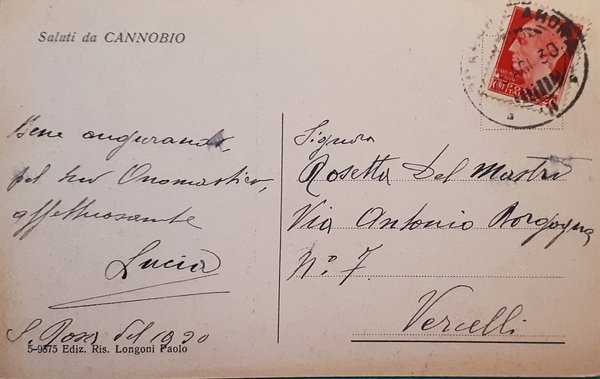 Saluti da CANNOBIO
Bene augurando,
pel tuo Onomastico,
affettuosamente
Lucia
S. Rosa del 1930
5-9375 Ediz. Ris. Longoni Paolo
Signora
Rosetta Del Mastro
Via Antonio Borgogna
N.º 7
Vercelli